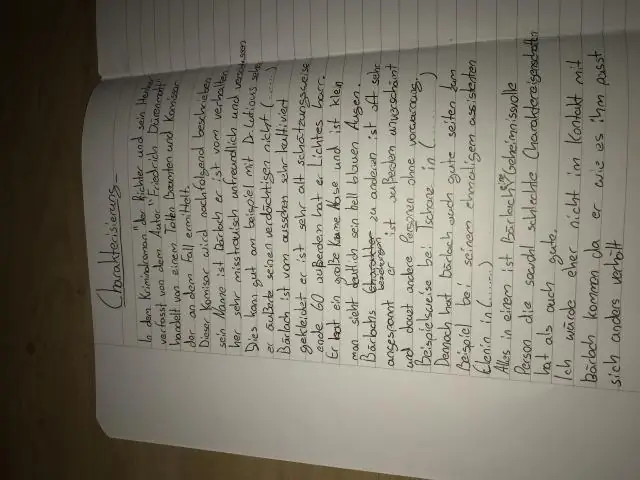 Charakterisierung
In dem Kriminalroman "der Richter und sein Henker"
verfasst von dem Autor "Friedrich Dürenmatt"
handelt von einem Toten Beamten und Komisar
der an dem Fall ermittelt.
Dieser Komisar wird nachfolgend beschrieben
sein Name ist Bärlach er ist vom verhalten
her sehr misstrauisch unfreundlich und
Dies kann gut am beispiel mit Dr. Lutious sehn
er äußerte seinen verdächtigen nicht (......)
Bärlach ist vom aussehen sehr kultiviert
gekleidet er ist sehr alt schätzungsweise
ende 60 außerden hat er Lichtes harr.
Er hat ein große Krume Nase und ist klein
man sieht deutlich sein hell blauen Augen.
Bärlachs benehmen zu anderen ist oft sehr
angespannt er ist außerdem unverschämt
und dauzt andere Personen ohne vorwarnung.
Beispielsweise bei Tschanz in (......)
Dennoch hat bärlach auch gute seiten zum
Beispiel bei seinem ehmaligem assistenten
in (......)
Alles in einem ist Bärlach eine Geheimnissvolle
Person die sowohl schlechte Charaktereigenschaften
hat als auch gute.
Ich würde eher nicht im Kontakt mit
bärlach kommen da er wie es ihm passt
sich anders verhält